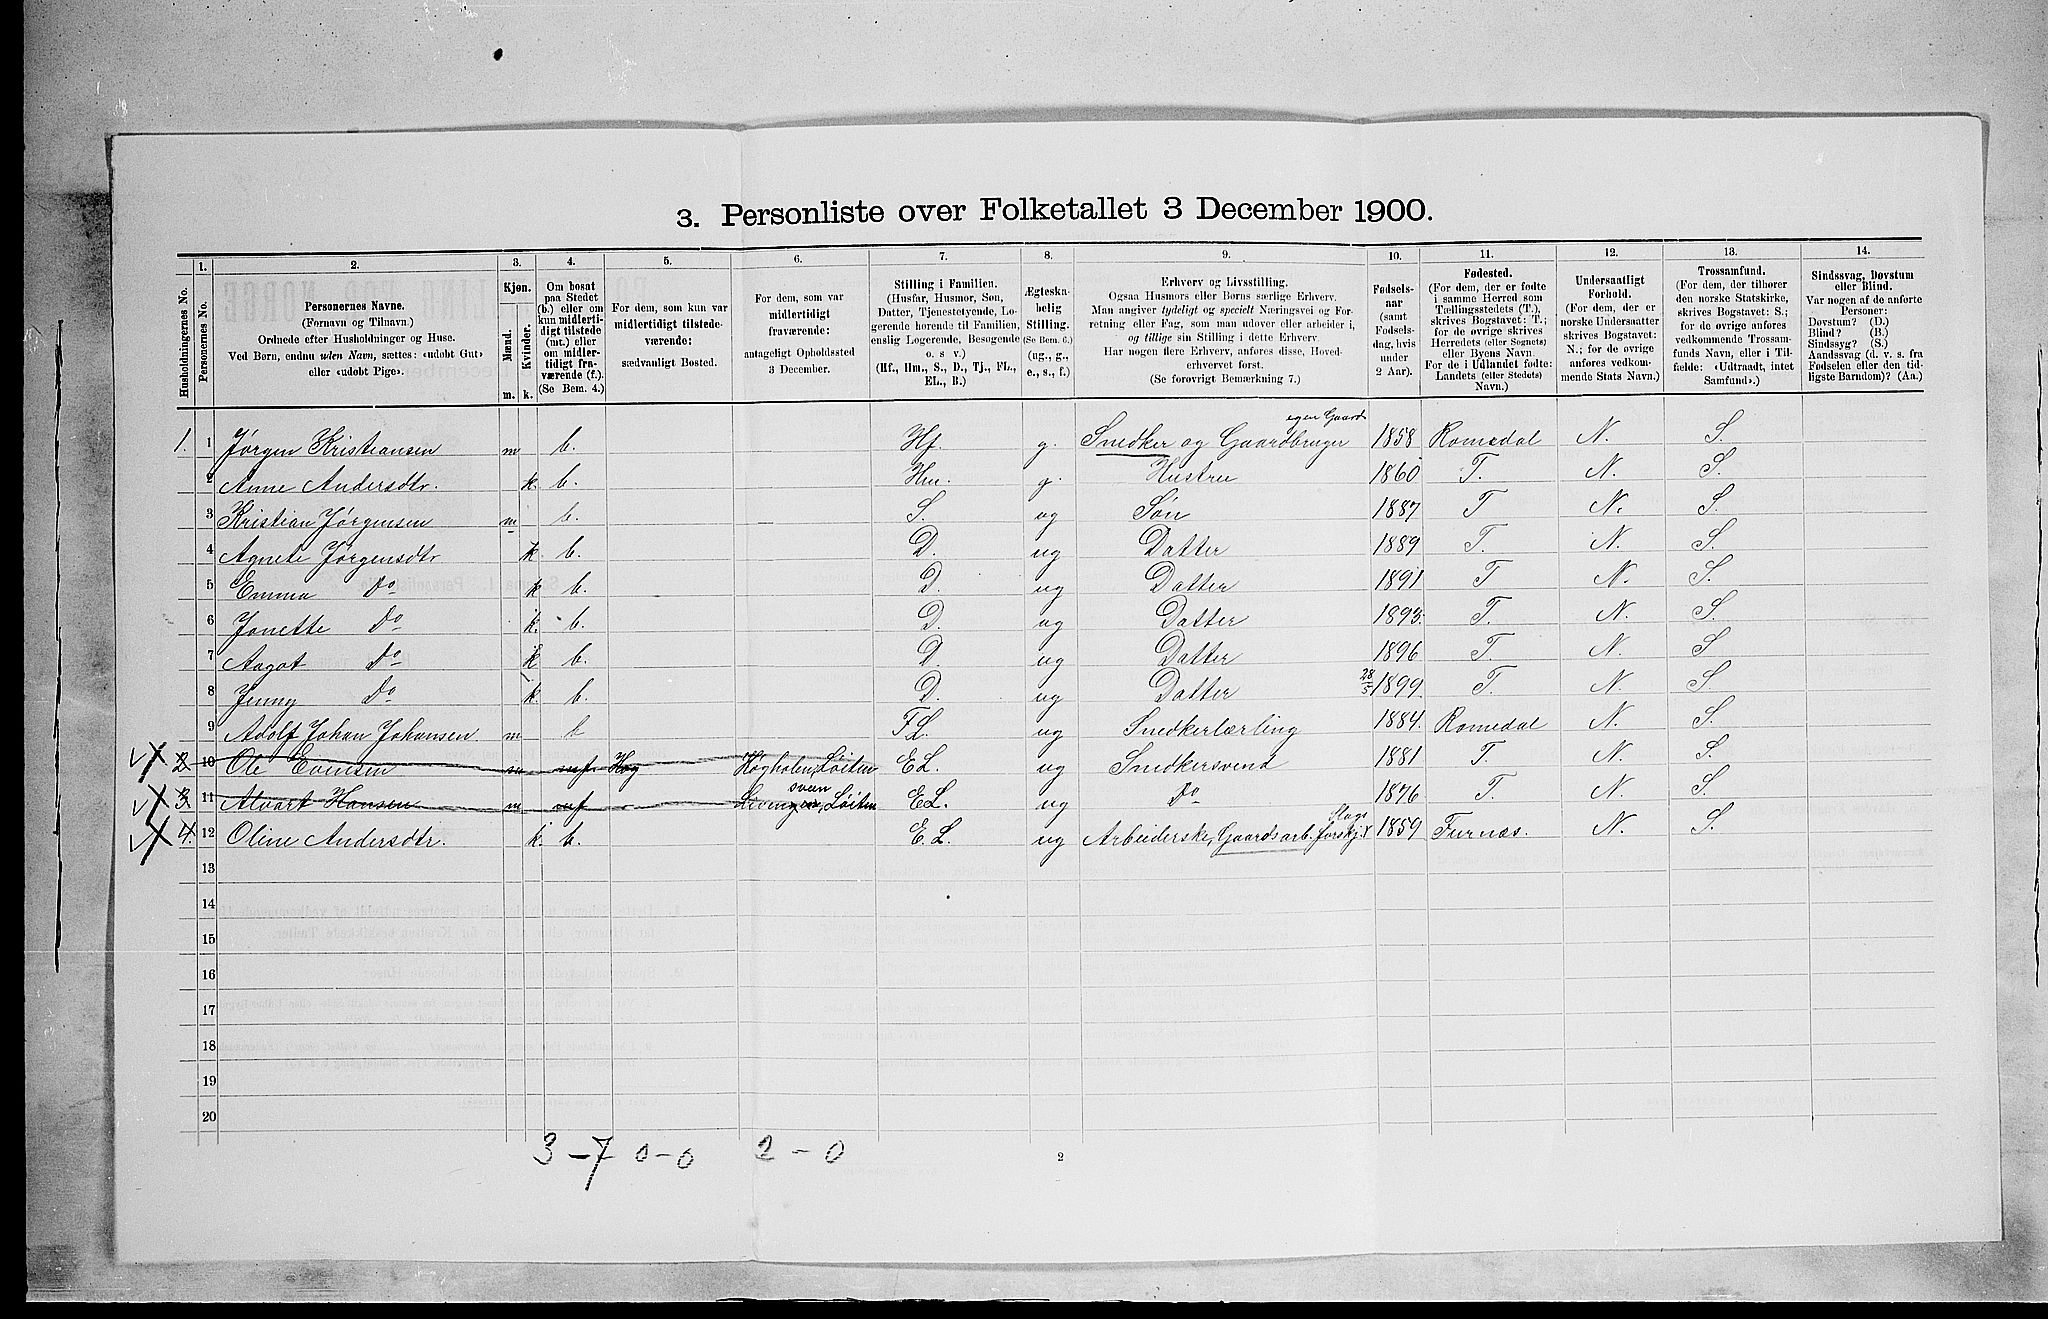 3. Personliste over Folketallet 3 December 1900.
Husholdningernes No.
1.
Personernes No.
2.
Personernes Navne.
(Fornavn og Tilnavn.)
Ordnede efter Husholdninger og Huse.
Ved Børn, endnu uden Navn, sættes: «udobt Gut»
eller «udobt Pige».
3.
Kjøn.
Mænd. Kvinder.
m. k.
4.
Om bosat
paa Stedet
(b.) eller om
kun midlerti-
digt tilstede
(mt.) eller
om midler-
tidigt fra-
værende (f.).
(Se Bem. 4.)
5.
For dem, som kun var
midlertidigt tilstede-
værende:
sædvanligt Bosted.
6.
For dem, som var
midlertidigt
fraværende:
antageligt Opholdssted
3 December.
7.
Stilling i Familien.
(Husfar, Husmor, Søn,
Datter, Tjenestetyende, Lo-
gerende hørende til Familien,
enslig Logerende, Besøgende
o. s v.)
(Hf., Hm., S., D., Tj., FL.,
EL., B.)
8.
Ægteska-
belig
Stilling.
(Se Bem. 6.)
(ug., g.,
e., s., f.)
9.
Erhverv og Livsstilling.
Ogsaa Husmors eller Børns særlige Erhverv.
Man angiver tydeligt og specielt Næringsvei og For-
retning eller Fag, som man udover eller arbeider i,
og tillige sin Stilling i dette Erhverv.
Har nogen flere Erhverv, anføres disse, Hoved-
erhvervet først.
(Se forøvrigt Bemærkning 7.)
10.
Fødsels-
aar
(samt
Fødsels-
dag, hvis
under
2 Aar).
11.
Fødested.
(For dem, der er fødte
i samme Herred som
Tællingsstedets (T.),
skrives Bogstavet: T.;
for de øvrige skrives
Herredets (eller Sognets)
eller Byens Navn.
For de i Udlandet fødte:
Landets (eller Stedets)
Navn.)
12.
Undersaatligt
Forhold.
(For dem, der er
norske Undersaatter
skrives Bogstavet:
N.; for de øvrige
anføres vedkom-
mende Stats Navn.)
13.
Trossamfund.
(For dem, der tilhører
den norske Statskirke,
skrives Bogstavet: S.;
for de øvrige anføres
vedkommende Trossam-
funds Navn, eller i Til-
fælde: «Udtraadt, intet
Samfund».)
14.
Sindssvag, Døvstum
eller Blind.
Var nogen af de anførte
Personer:
Døvstum? (D.)
Blind? (B.)
Sindssyg? (S.)
Aandssvag (d. v. s. fra
Fødselen eller den tid-
ligste Barndom)? (Aa.)
egen Gaard
1. 1 Jørgen Kristiansen m b. Hf. g. Snedker og Gaardbruger 1858 Romedal N. S.
2 Anne Andersdtr. k. b. Hm. g. Hustru 1860 T. N. S.
3 Kristian Jørgensen m b. S. ug Søn 1887 T N. S.
4 Agnete Jørgensdtr k. b. D. ug Datter 1889 T. N. S.
5 Emma Do k b. D. ug Datter 1891 T N. S.
6 Jonette Do k. b. D. ug Datter 1893. T. N. S.
7 Aagot Do k b. D. ug Datter 1896 T. N. S
8 Jenny Do k. b. D. ug Datter 28/5 1899 T. N. S
9 Adolf Johan Johansen m b FL. ug Snedkerlærling 1884. Romedal N. S.
2 10 Ole Evensen m mf Høg Høgholen, Løiten EL. ug Snedkersvend 1881 T. N. S.
svæen
3 11 Alvart Hansen m mf Løiten EL. ug Do 1876 T. N. S.
Slags
4. 12 Oline Andersdtr. k. b. E.L. ug Arbeiderske, Gaardsarb. forskj. 1859 Furnæs. N. S.
13
14
15
16
17
18
19
20
3 - 7 0 - 0 2 - 0
2